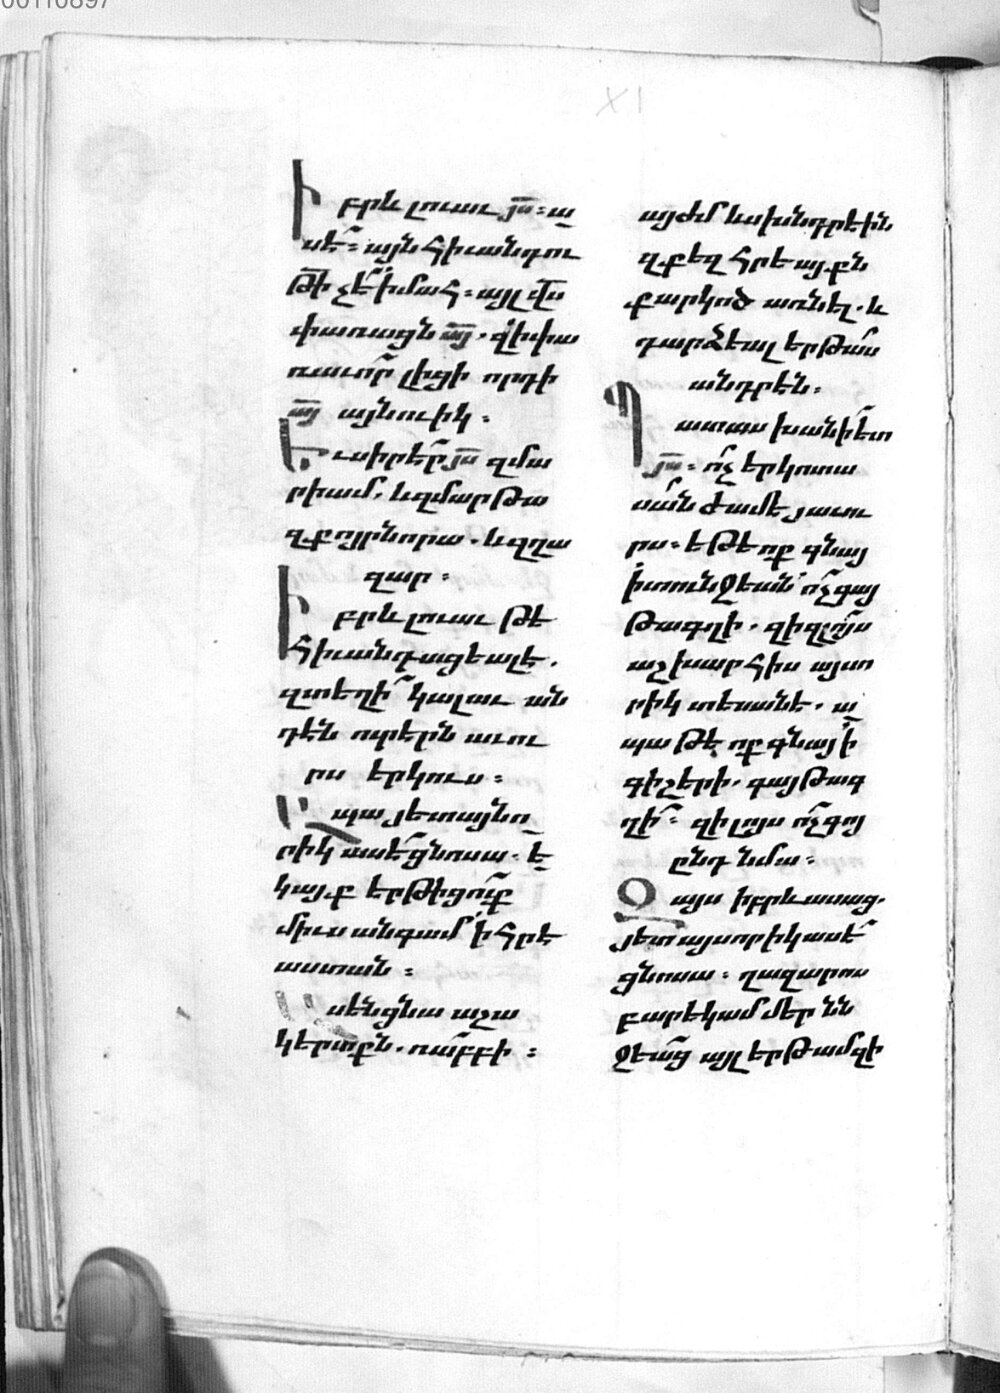 00110897
XI
Իբրև լուաւ յս՟. ա
սէ՟. այն հիւանդու
թի՟ չէ՟ ի մահ. այլ վս՟
փառացն այ՟. զի փա
ռաւո՟ր լիցի որդի
այ՟ այնուիկ։
Եւ սիրէր յս՟ զմա
րիամ. և զմարթա
զքոյր նորա. և զղա
զար։
Իբրև լուաւ թէ
հիւանդացեալ է.
զտեղի՟ կալաւ ան
դէն ոյր էրն աւու
րս երկուս։
Ապա յետ այնո
րիկ ասէ՟ ցնոսա. ե
կայք երթիցո՟ւք
միւս անգամ ի հրէ
աստան։
Ասեն ցնա աշա
կերտքն. ռա՟բբի։
այժմ ևս խնդրէին
զքեզ հրեայքն
քարկոծ առնել. և
դարձեալ երթա՟ս
անդրէն։
Պատասխանի՟ ետ
յս՟. ո՟չ երկոտա
սա՟ն ժամ է յաւու
րս. եթէ ոք գնայ
ի տունջեան՝ ո՟չ գայ
թագղի. զի զլոյս
աշխարհիս այսո
րիկ տեսանէ. ա
պա թէ ոք գնայ ի
գիշերի. գայթագ
ղի՟. զի լոյս ո՟չ գոյ
ընդ նմա։
Զայս իբրև ասաց.
յետ այսորիկ ասէ՟
ցնոսա. ղազարոս
բարեկամ մեր նն
ջեա՟ց այլ երթամ զի